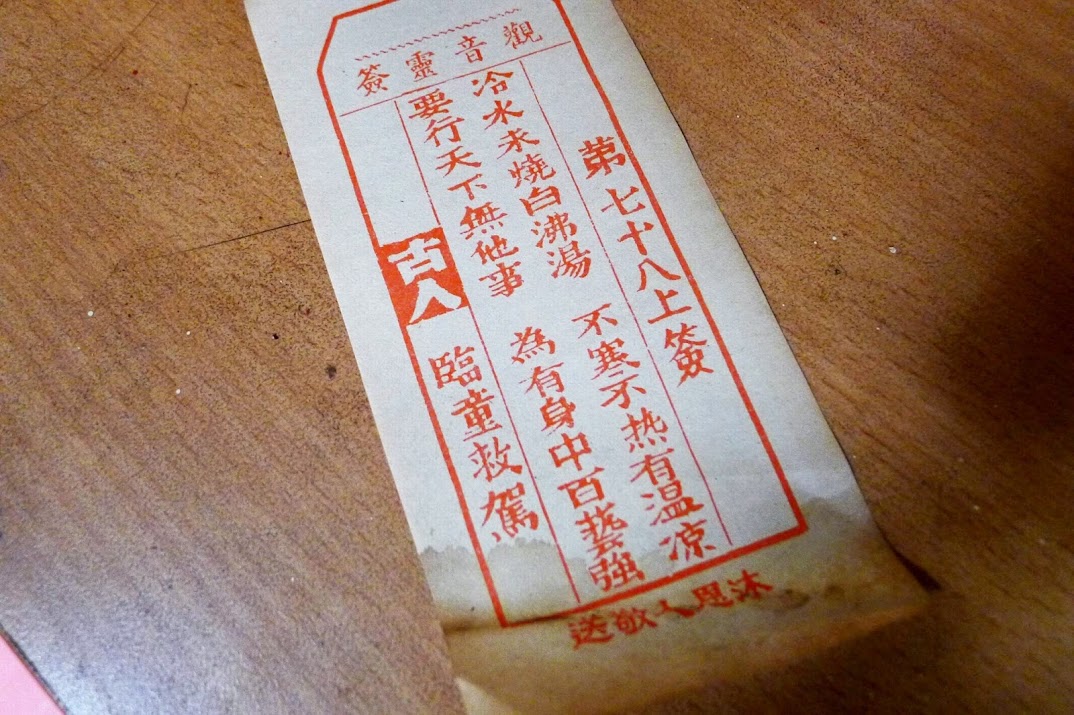 觀音靈簽
第七十八上簽
冷水未燒白沸湯　不寒不热有温凉
要行天下無他事　為有身中百藝強
古人　臨童救駕
沐恩人敬送